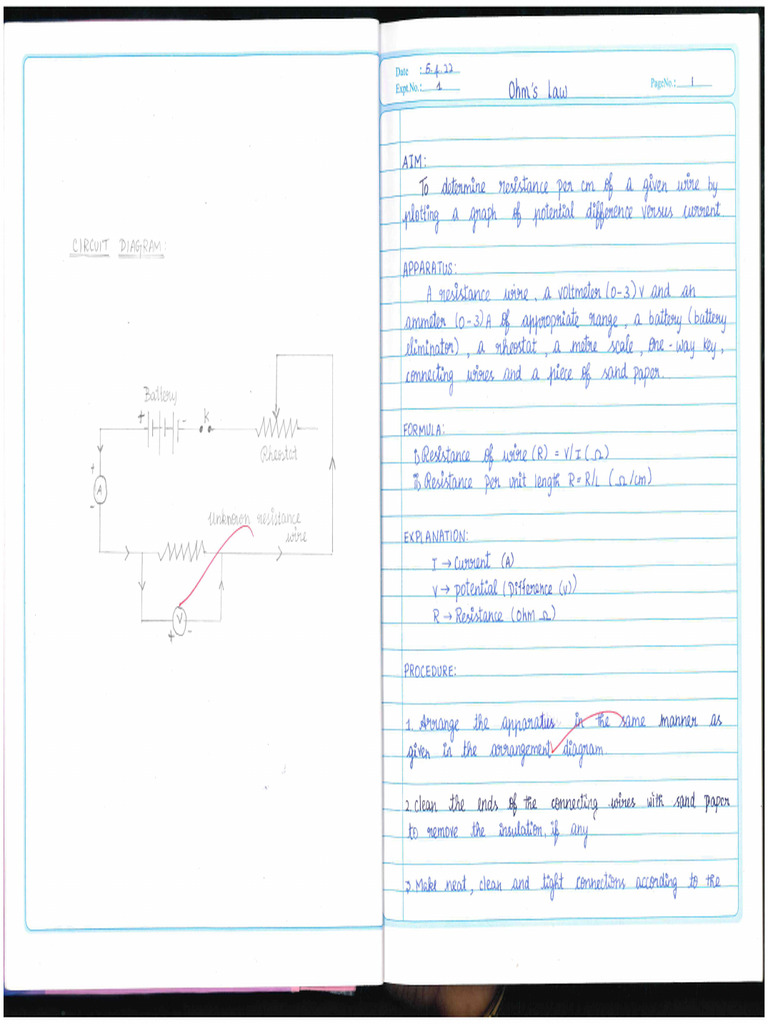 CIRCUIT DIAGRAM:
Battery
+
-
K
Rheostat
+
A
-
Unknown resistance
wire
V
+
-
Date : 5.4.22
Expt.No.: 1
Ohm's Law
PageNo.: 1
AIM:
To determine resistance per cm of a given wire by
plotting a graph of potential difference versus current
APPARATUS:
A resistance wire, a voltmeter (0-3) V and an
ammeter (0-3) A of appropriate range, a battery (battery
eliminator), a rheostat, a metre scale, one-way key,
connecting wires and a piece of sand paper.
FORMULA:
i) Resistance of wire (R) = V/I (Ω)
ii) Resistance per unit length R = R/L (Ω/cm)
EXPLANATION:
I → Current (A)
V → potential (Difference (V))
R → Resistance (Ohm Ω)
PROCEDURE:
1. Arrange the apparatus in the same manner as
given in the arrangement diagram
2. Clean the ends of the connecting wires with sand paper
to remove the insulation, if any
3. Make neat, clean and tight connections according to the